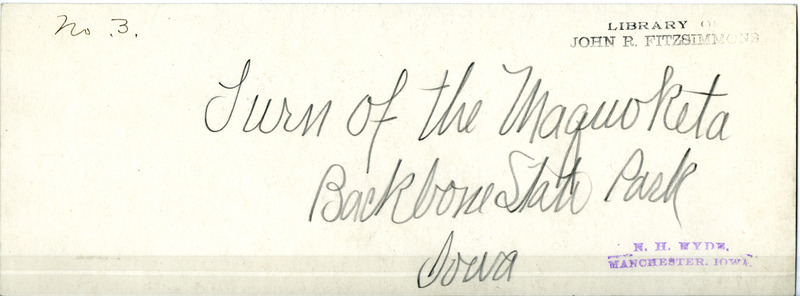 No. 3.
LIBRARY OF
JOHN R. FITZSIMMONS
Turn of the Maquoketa
Backbone State Park
Iowa
N. H. WYDE,
MANCHESTER, IOWA.